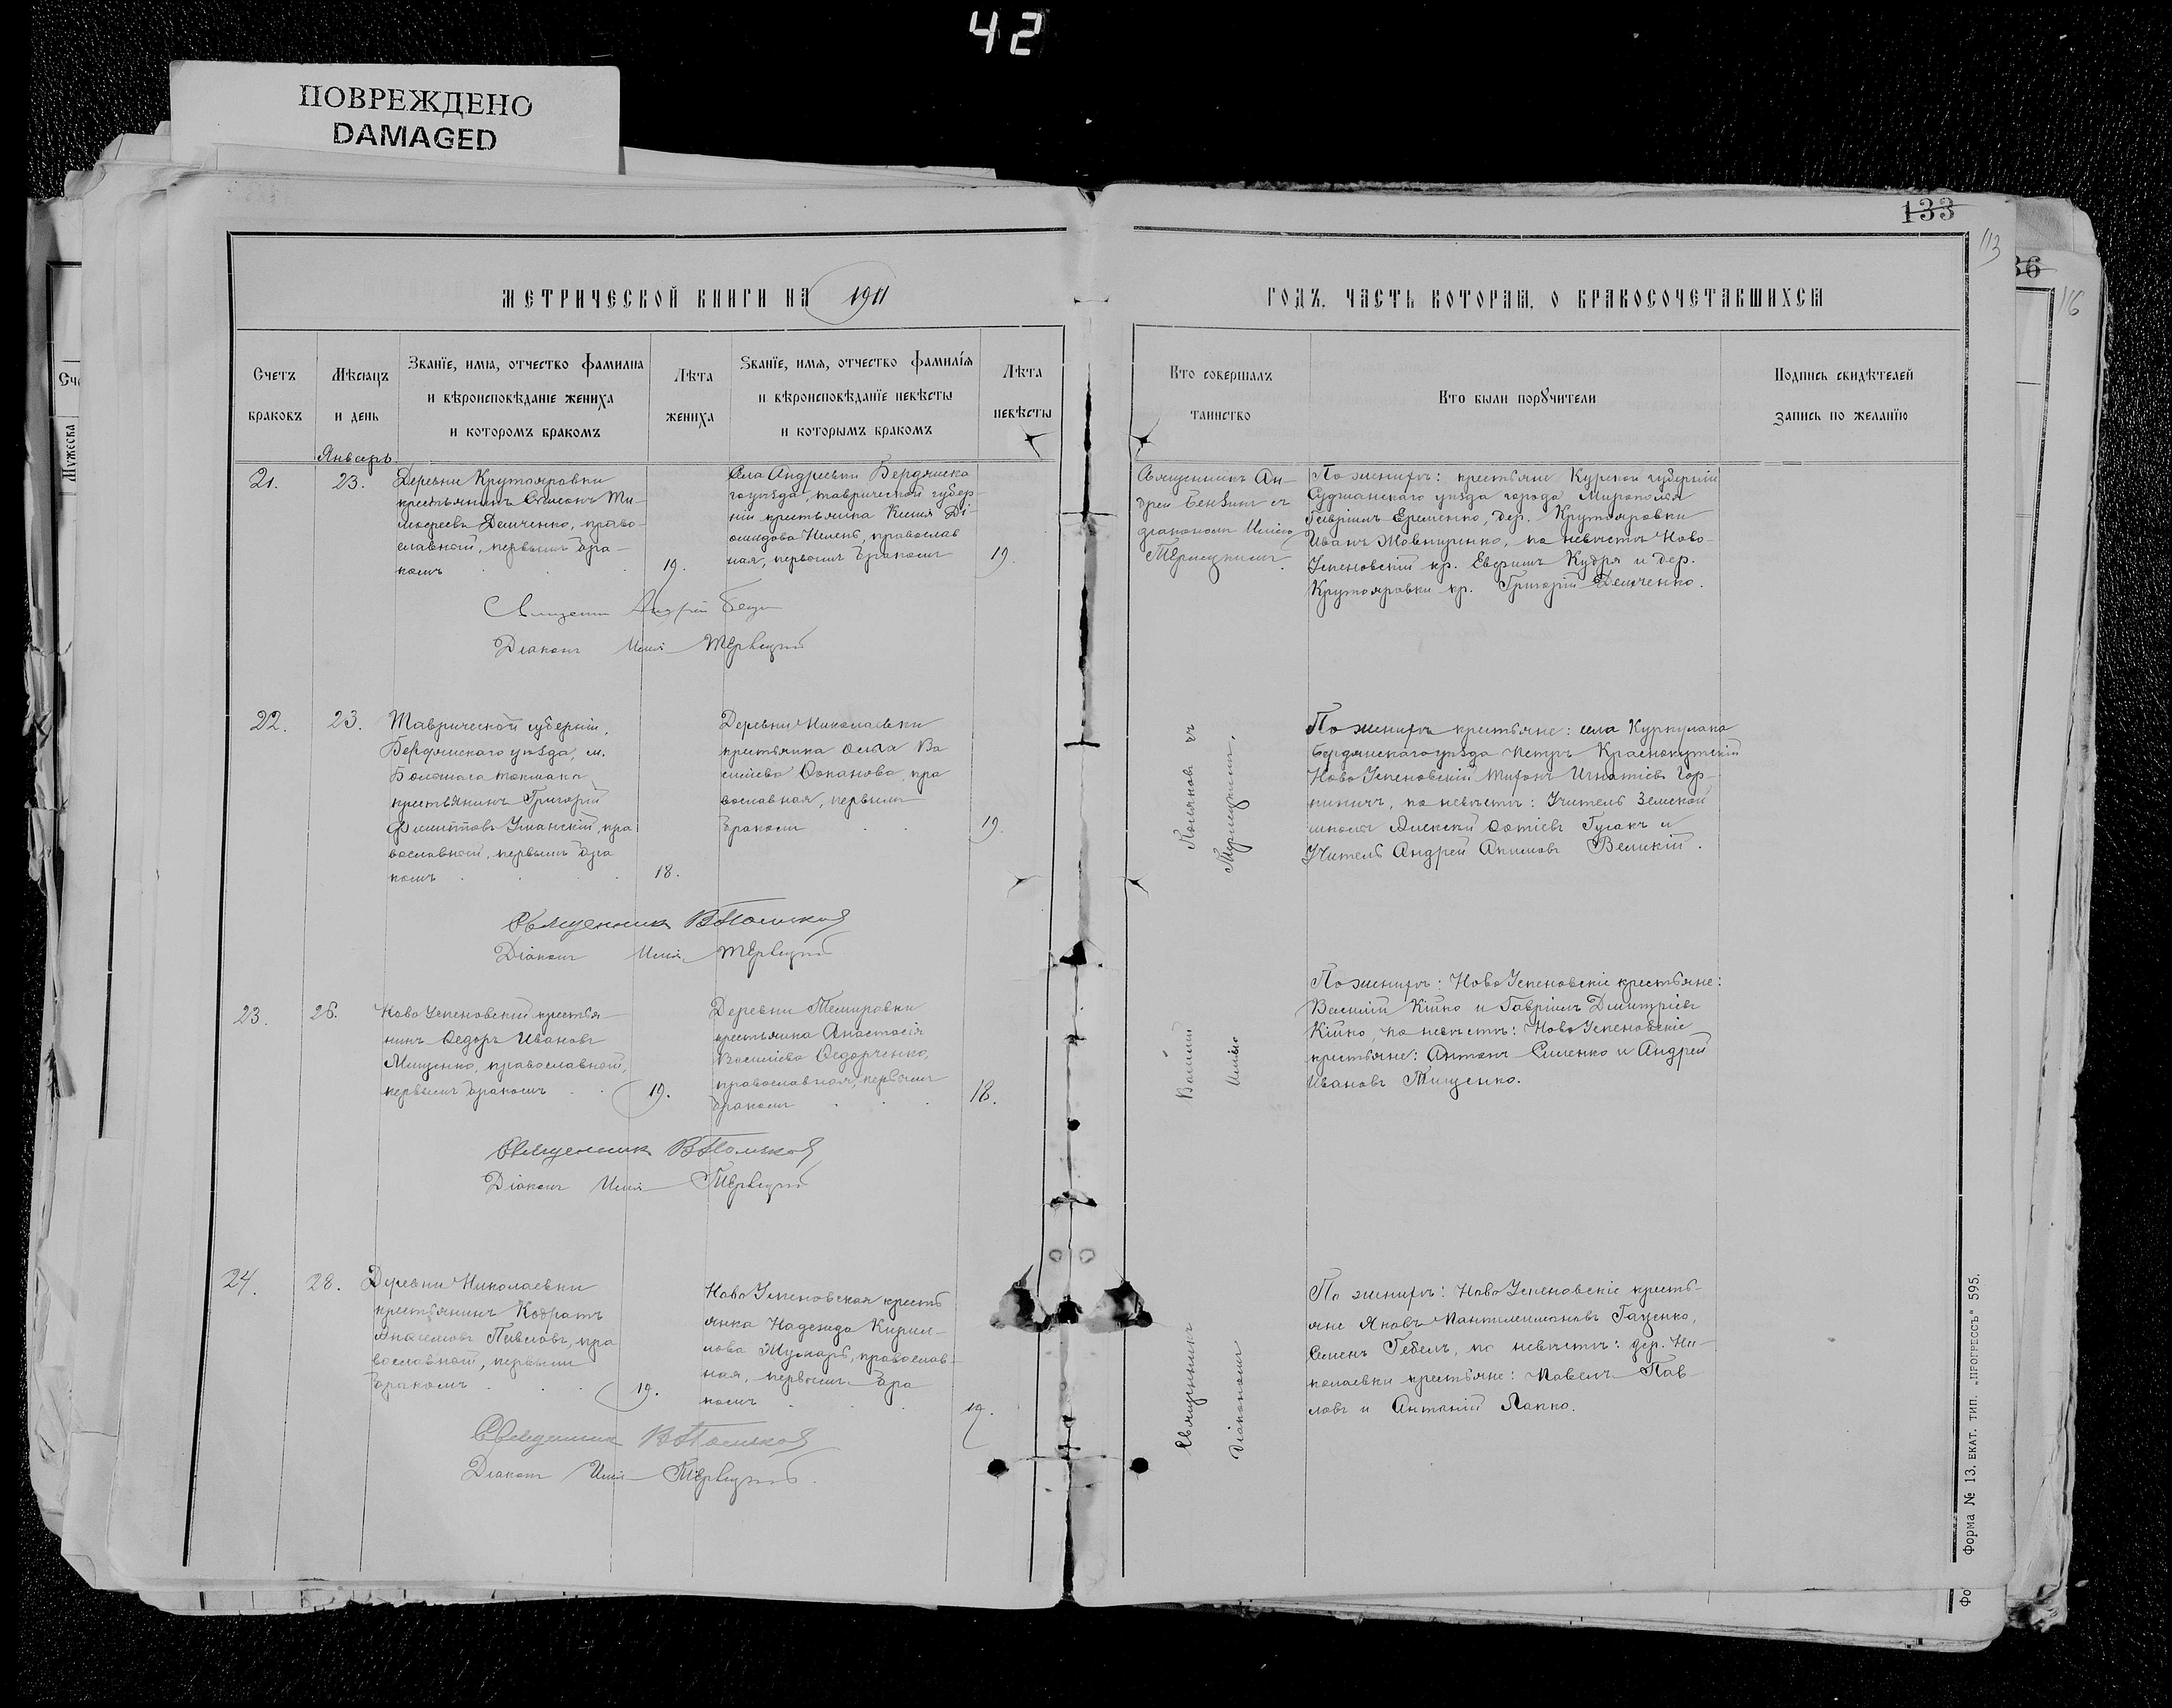 42
ПОВРЕЖДЕНО
DAMAGED
133
113
36
116
МЕТРИЧЕСКОЙ КНИГИ НА 1911
ГОДЪ, ЧАСТЬ ВТОРАЯ, О БРАКОСОЧЕТАВШИХСЯ
Счетъ
браковъ
Мѣсяцъ
и день
Званїе, имя, отчество фамилїя
и вѣроисповѣданїе жениха
и которомъ бракомъ
Лѣта
жениха
Званїе, имя, отчество фамилїя
и вѣроисповѣданїе невѣсты
и которымъ бракомъ
Лѣта
невѣсты
Кто совершалъ
таинство
Кто были порꙋчители
Подпись свидѣтелей
запись по желанїю
Январь
21.
23.
Деревни Крутояровки
крестьянинъ Симеонъ Ти-
мофеевъ Демченко, право-
славный, первымъ бра-
комъ
19.
Села Андреевки Бердянска
го уѣзда, таврической губер-
ніи крестьянка Ксенія
православ
ная, первымъ бракомъ
19.
Священникъ Ан-
дрей съ
діакономъ Иліею
По женихѣ: крестьяне Курской губерніи
Суджанскаго уѣзда города Мирополья
Гавріилъ Еременко, дер. Крутояровки
Иванъ по невѣстѣ: Ново-
Успеновскій кр. Евфимъ Кудря и дер.
Крутояровки кр. Григорій Демченко.
Діаконъ Илія
22.
23.
Таврической губерніи,
Бердянскаго уѣзда, м.
Большаго Токмака,
крестьянинъ Григорій
Уманскій, пра
вославный, первымъ бра
комъ
18.
Деревни Николаевки
крестьянка Ва
сильева пра
вославная, первымъ
бракомъ
19.
По женихѣ крестьяне: села Куркулака
Бердянскаго уѣзда Петръ Краснокутскій
Ново Успеновскій Игнатіевъ Гор-
по невѣстѣ: Учитель Земской
школы Алексей Гусакъ и
Учитель Андрей Акимовъ Великій.
Священникъ
Діаконъ Илія
23.
26.
Ново Успеновскій крестья-
нинъ Ѳедоръ Ивановъ
Мищенко, православный,
первымъ бракомъ
19.
Деревни Темировки
крестьянка Анастасія
Василіева Ѳедорченко,
православная, первымъ
бракомъ
18.
По женихѣ: Ново Успеновскіе крестьяне:
Василій Кійко и Гавріилъ Димитріевъ
Кійко, по невѣстѣ: Ново Успеновскіе
крестьяне: Антонъ Сименко и Андрей
Ивановъ Мищенко.
Священникъ
Діаконъ Илія
24.
28.
Деревни Николаевки
крестьянинъ Кодратъ
Павловъ, пра
вославный, первымъ
бракомъ
19.
Ново Успеновская кресть
янка Надежда Кирил-
лова православ-
ная, первымъ бра
комъ
19.
Священникъ Василій Поляковъ съ
Діакономъ Иліею
По женихѣ: Ново Успеновскіе кресть-
яне Яковъ Пантелеимоновъ Гаценко,
Семенъ Гебель, по невѣстѣ: дер. Ни-
колаевки крестьяне: Павелъ Пав-
ловъ и Антоній Лапко.
Священникъ
Діаконъ Илія
Форма № 13. ЕКАТ. ТИП. „ПРОГРЕССЪ" 595.